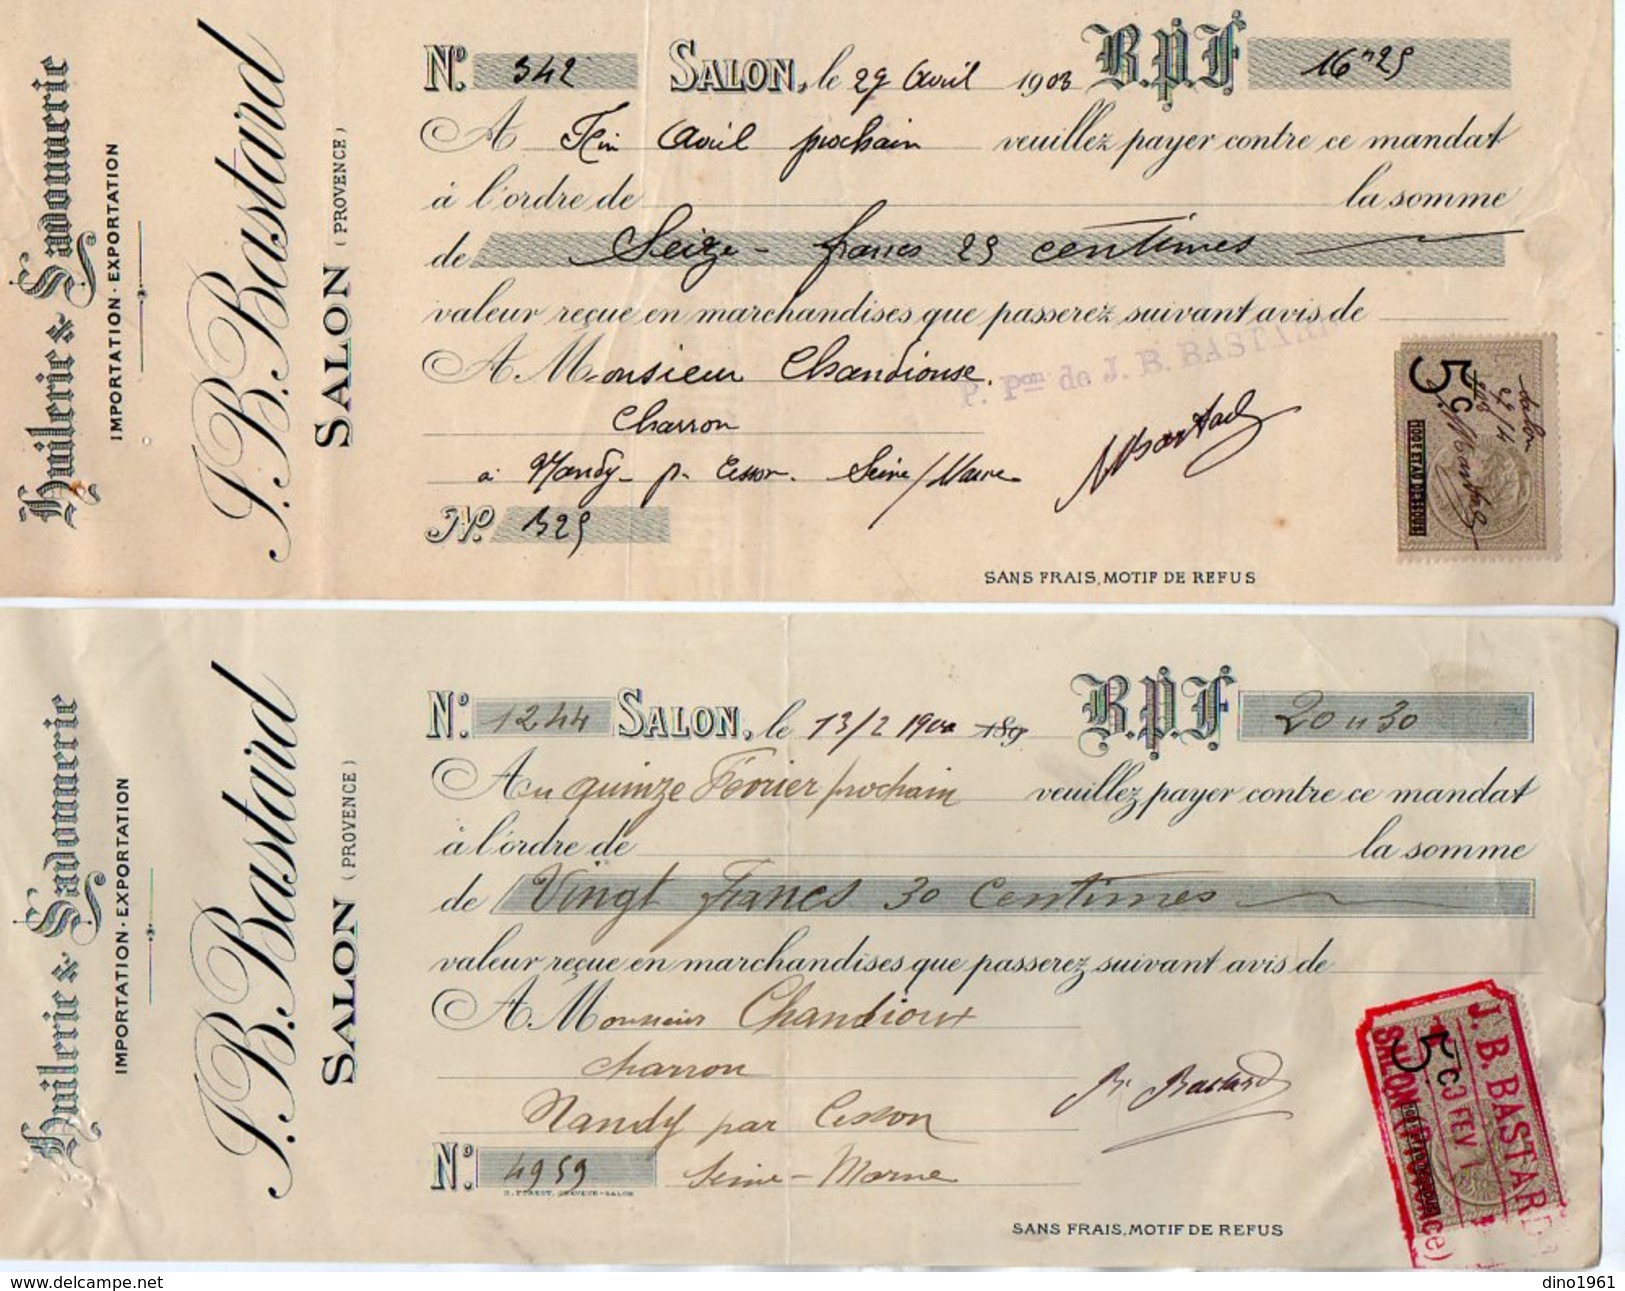 Huilerie & Savonnerie
IMPORTATION - EXPORTATION
J. B. Bastard
SALON (PROVENCE)
No. 342 SALON, le 29 Avril 1903 B.P.F 16 " 25
A Fin Avril prochain veuillez payer contre ce mandat
à l'ordre de la somme
de Seize francs 25 centimes
valeur reçue en marchandises que passerez suivant avis de
A Monsieur Chandiouse.
Charron
à Nandy p. Cesson. Seine/Marne
P. Pon de J. B. BASTARD
No. 325
5c
SANS FRAIS, MOTIF DE REFUS
Huilerie & Savonnerie
IMPORTATION - EXPORTATION
J. B. Bastard
SALON (PROVENCE)
No. 1244 SALON, le 13/2 1900 189 B.P.F 20 " 30
Au quinze Février prochain veuillez payer contre ce mandat
à l'ordre de la somme
de Vingt francs 30 Centimes
valeur reçue en marchandises que passerez suivant avis de
A Monsieur Chandioux
Charron
Nandy par Cesson
No. 4959 Seine-Marne
Bastard
J. B. BASTARD
5c
13 FEV
SALON (Provence)
SANS FRAIS, MOTIF DE REFUS
dino1961